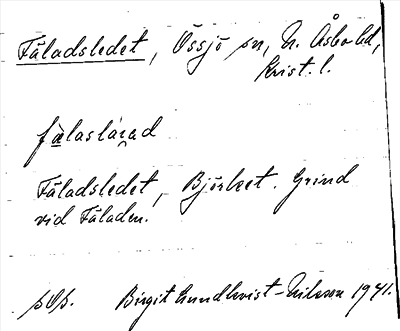 Fäladsledet, Össjö sn, N. Åsbo hd,
Krist. l.
Fäladsledet, Björket. Grind
vid Fäladen.
Birgit Lundkvist-Nilsson 1941.